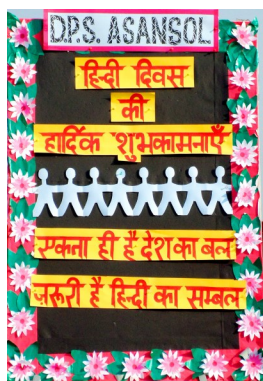 D.P.S. ASANSOL
हिन्दी दिवस
की
हार्दिक शुभकामनाएँ
एकता ही है देश का बल
ज़रूरी है हिन्दी का सम्बल